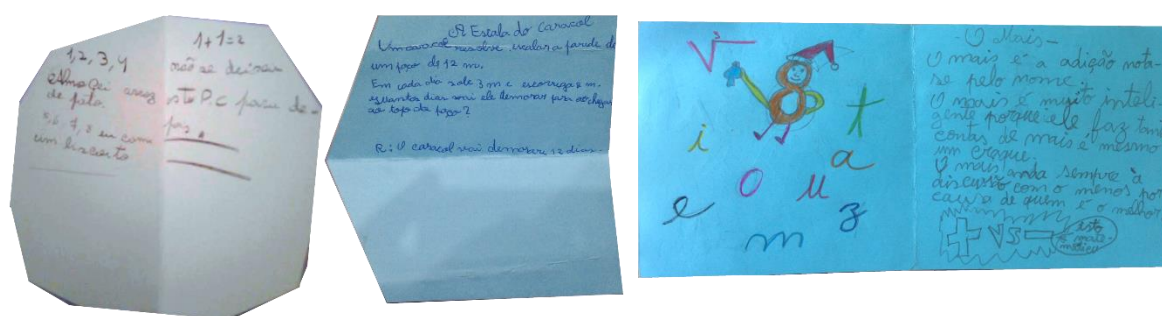 1, 2, 3, 4
arroz
de pato.
5, 6, 7, 8 eu como
um biscoito
1+1=2
não se deixa
para de-
pois.
A Escala do Caracol
Um caracol resolve escalar a parede de
um poço de 12 m.
Em cada dia sobe 3 m e escorrega m.
quantos dias vai ele demorar para chegar
ao topo do poço?
R: O caracol vai demorar 12 dias.
3
i
t
a
o
u
e
m
z
-O Mais-
O mais é a adição nota-
se pelo nome.
O mais é muito inteli-
gente porque ele faz tan
contas de mais é mesmo
um craque.
O mais anda sempre à
discussão com o menos por
causa de quem é o melhor
+ VS -
isto
é mate-
mática